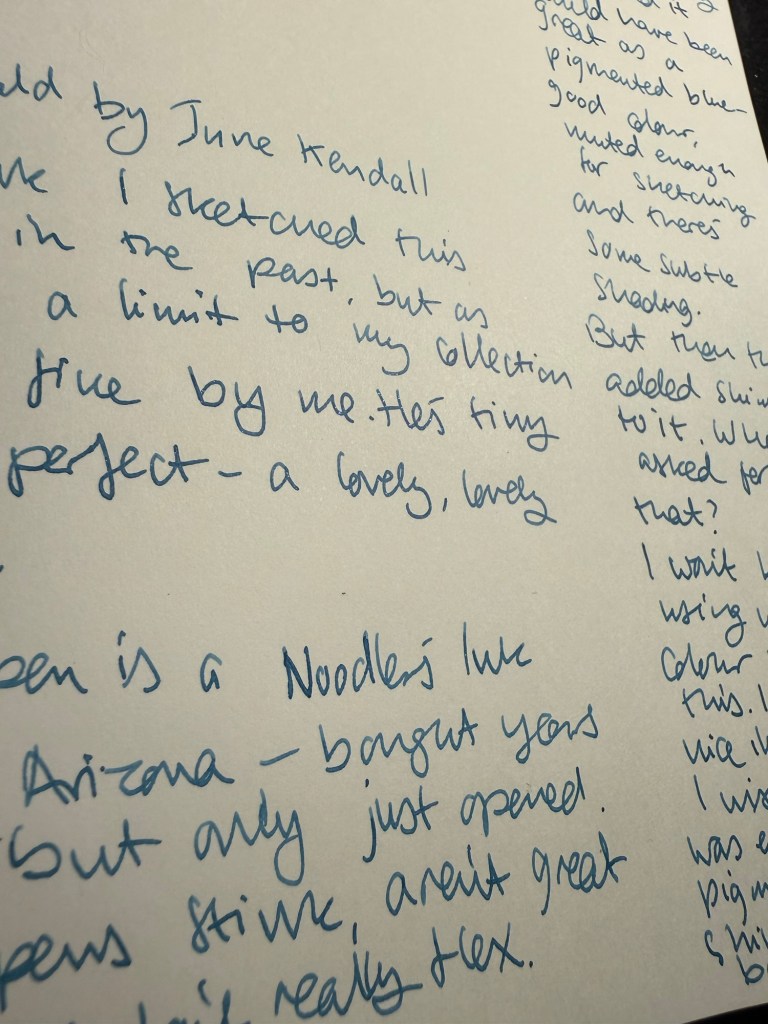 by June Kendall
I sketched this
in the past, but as
a limit to my collection
fine by me. He's tiny
perfect - a lovely, lovely
pen is a Noodler's Ink
Arizona - bought years
but only just opened.
pens stink, aren't great
really flex.
it
have been
great as a
pigmented blue-
good colour,
muted enough
for sketching
and there's
some subtle
shading.
But then
added
to it. Who
asked for
that?
I won't
using
colour
this. I
nice
I
was